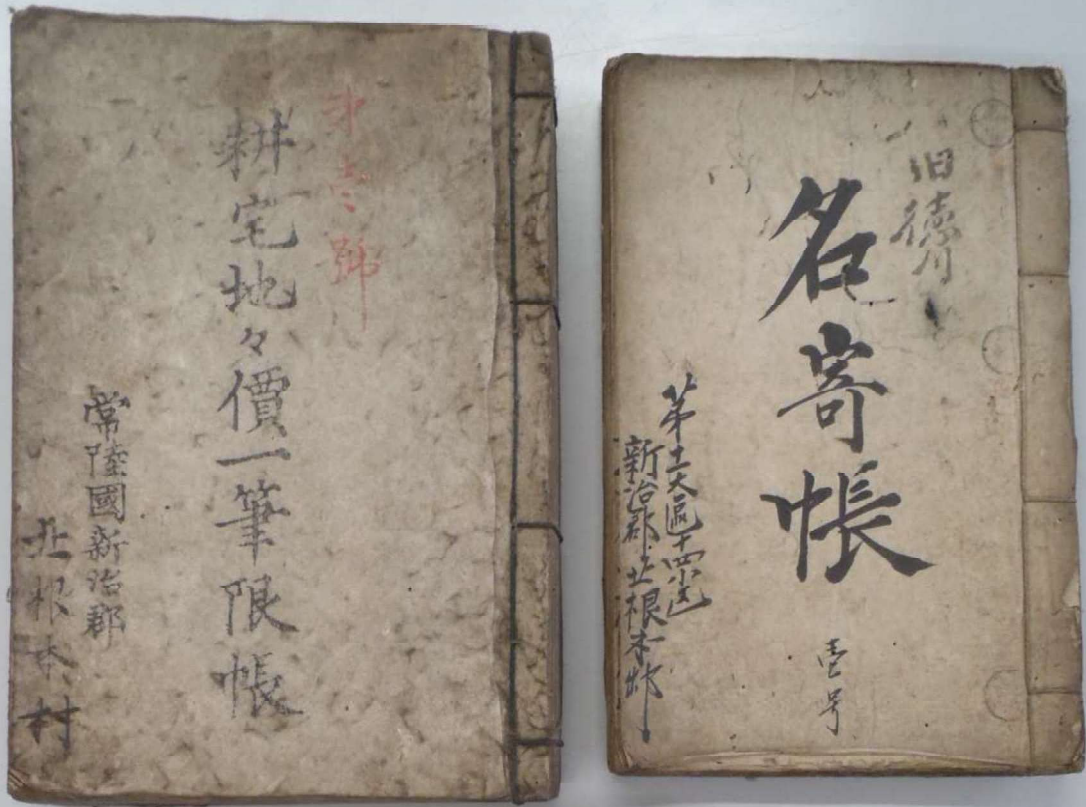 第壱號
耕宅地々價一筆限帳
常陸國新治郡
北根本村
旧徳川
名寄帳
壱号
第十一大區十四小區
新治郡北根本邨